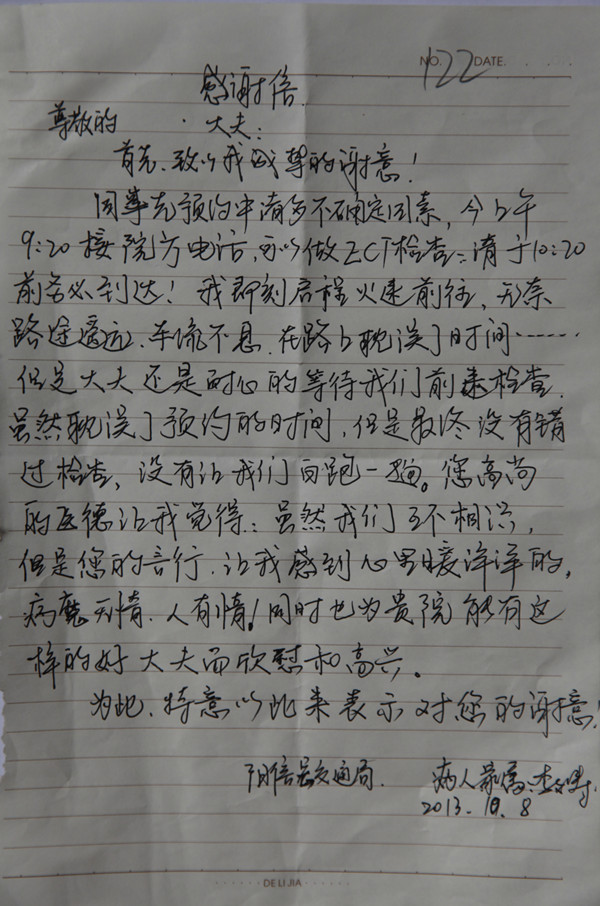 NO. 122 DATE.
感谢信.
尊敬的 大夫:
首先、致以我诚挚的谢意!
因事先预约中有多不确定因素,今上午
9:20接院方电话,可以做ECT检查:请于10:20
前务必到达!我即刻启程火速前往,无奈
路途遥远、车流不息、在路上耽误了时间……
但是大夫还是耐心的等待我们前来检查.
虽然耽误了预约的时间,但是最终没有错
过检查,没有让我们白跑一趟。您高尚
的医德让我觉得:虽然我们互不相识,
但是您的言行、让我感到心里暖洋洋的,
病魔无情、人有情!同时也为贵院能有这
样的好大夫而欣慰和高兴。
为此、特意以此来表示对您的谢意!
阳信县交通局. 病人家属:
2013.10.8
DELIJIA